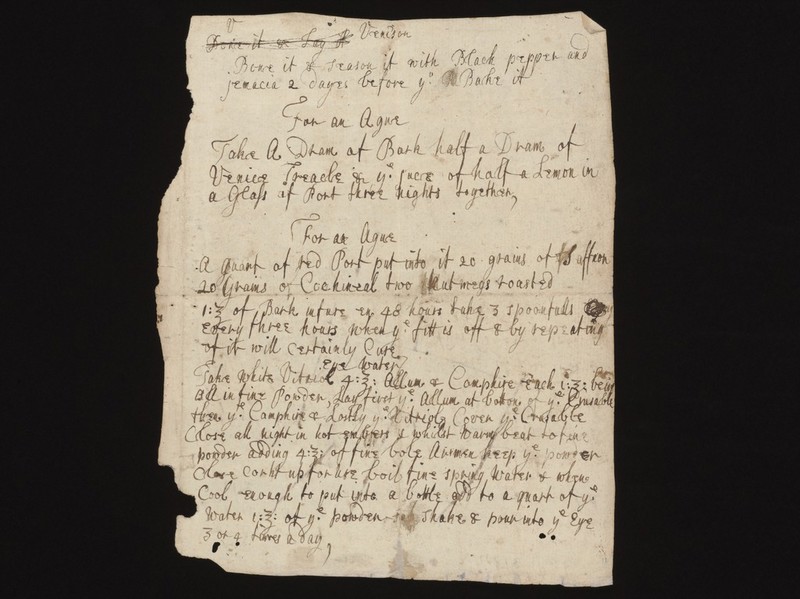 V
Bone it & Lay it Venison
Bone it & season it with Black pepper and
Jemacia 2 dayes before yᵉ Bake it
For an Ague
Take A Dram of Bark half a Dram of
Venice Treacle & yᵉ Juce of half a Lemon in
a Glass of Port three nights together,
For an Ague
A quart of red Port put into it 20 grains of Suffron
20 Grains of Cochineal two Nutmegs roasted
1:℥ of Bark infuse em 48 hours take 3 spoonfulls
Every three hours when yᵉ fitt is off & by repeating
of it will Certainly Cure
Eye Water,
Take White Vitriol 4:℥: Allum & Camphire each 1:℥: being
all in fine Powder Lay first yᵉ Allum at bottom of yᵉ Crusable
then yᵉ Camphire & Lastly yᵉ Vitriol, Cover yᵉ Crusable
Close all night in hot embers & whilst warm beat to fine
powder adding 4:℥: of fine bole Armen keep yᵉ powder
Close Corkt up for use boil fine spring water & when
Cool enough to put into a bottle add to a quart of yᵉ
Water 1:℥: of yᵉ powder shake & pour into yᵉ Eye
3 or 4 times a day,